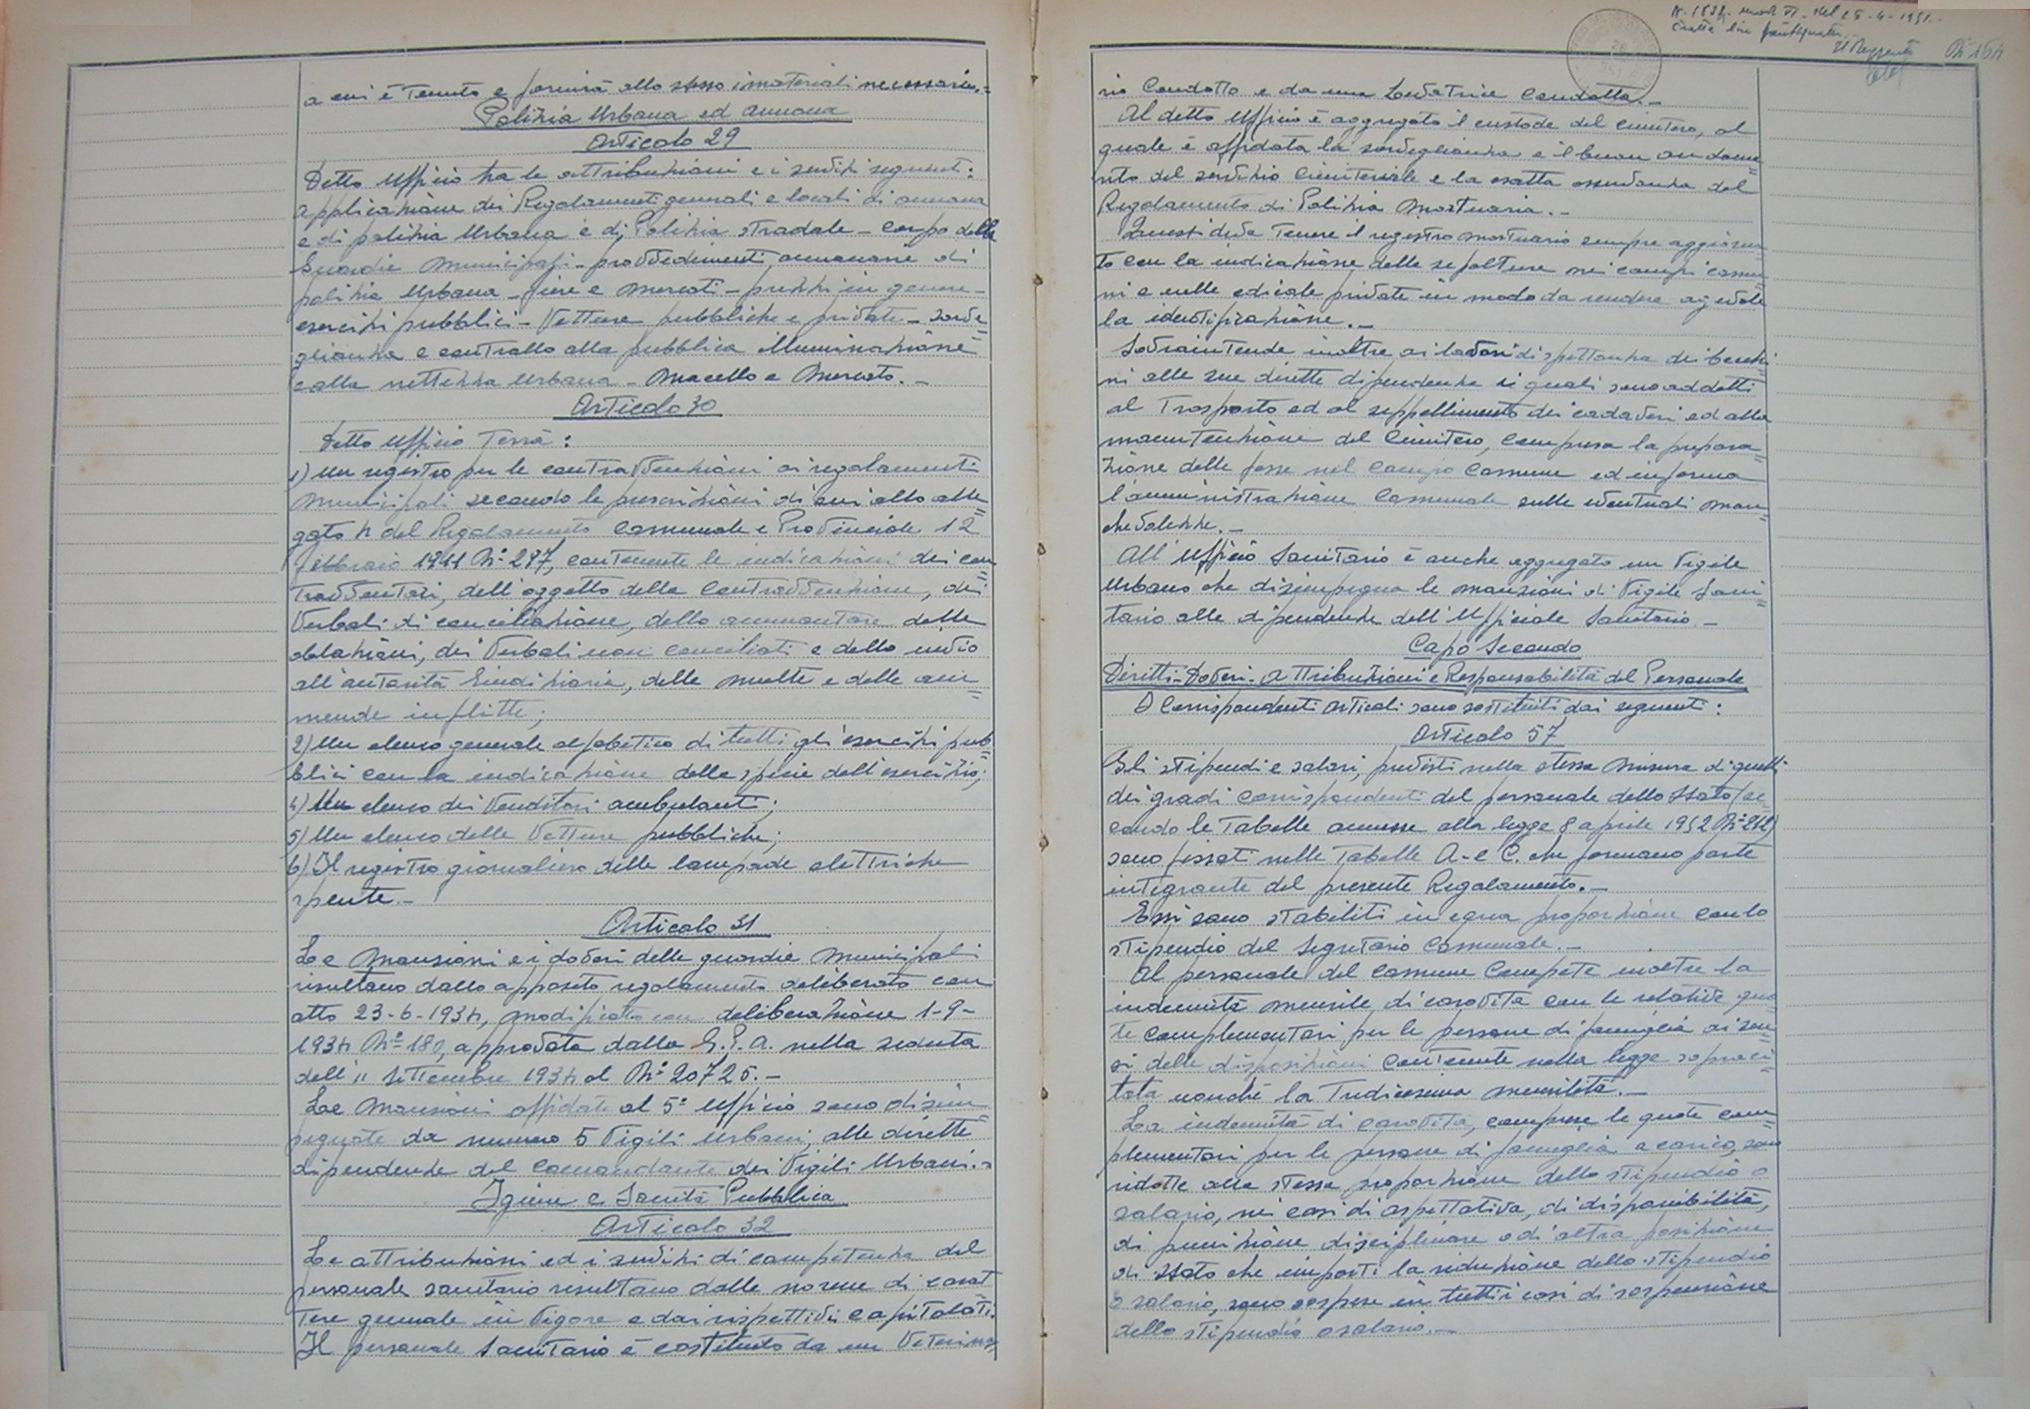 a cui è tenuto e fornirà allo stesso i materiali necessari.=
Polizia Urbana ed annona
Articolo 29
Detto Ufficio ha le attribuzioni e i servizi seguenti:
applicazione dei Regolamenti generali e locali di annona
e di polizia Urbana e di Polizia stradale - corpo delle
Guardie Municipali - provvedimenti annonari e di
polizia Urbana - fiere e mercati - prezzi in genere -
esercizi pubblici - Vetture pubbliche e private - sorve=
glianza e controllo alla pubblica illuminazione
e alla nettezza Urbana - Macello e Mercato. -
Articolo 30
Detto Ufficio Terrà:
1) Un registro per le contravvenzioni ai regolamenti
Municipali secondo le prescrizioni di cui allo alle=
gato n del Regolamento Comunale e Provinciale 12
febbraio 1911 N° 297, contenente le indicazioni dei con=
travventori, dell'oggetto della Contravvenzione, dei
Verbali di conciliazione, dello ammontare delle
oblazioni, dei Verbali non conciliati e dello invio
all'autorità Giudiziaria, delle multe e delle am=
mende inflitte;
2) Un elenco generale alfabetico di tutti gli esercizi pub=
blici con la indicazione della specie dell'esercizio;
4) Un elenco dei Venditori ambulanti;
5) Un elenco delle Vetture pubbliche;
6) Il registro giornaliero delle lampade elettriche
spente. -
Articolo 31
Le Mansioni e i doveri delle guardie Municipali
risultano dallo apposito regolamento deliberato con
atto 23-6-1934, modificato con deliberazione 1-9-
1934 N° 180, approvata dalla G.P.A. nella seduta
dell'11 Settembre 1934 al N° 20726. -
Le Mansioni affidate al 5° Ufficio sono disim=
pegnate da numero 5 Vigili Urbani, alle dirette
dipendenze del Comandante dei Vigili Urbani. -
Igiene e Sanità Pubblica
Articolo 32
Le attribuzioni ed i servizi di competenza del
personale sanitario risultano dalle norme di carat=
tere generale in Vigore e dai rispettivi capitolati.
Il personale Sanitario è costituito da un Veterina=
N. 1
Il Reggente
N° 164
rio Condotto e da una Levatrice Condotta. -
Al detto Ufficio è aggregato il custode del cimitero, al
quale è affidata la sorveglianza e il buon andame=
nto del servizio Cimiteriale e la esatta osservanza del
Regolamento di Polizia Mortuaria. -
Questi deve Tenere il registro mortuario sempre aggiorna=
to con la indicazione delle sepolture nei campi comu=
ni e nelle edicole private in modo da rendere agevole
la identificazione. -
Sovraintende inoltre ai lavori di spettanza dei becchi=
ni alle sue dirette dipendenze i quali sono addetti
al Trasporto ed al seppellimento dei cadaveri ed alla
manutenzione del Cimitero, compresa la prepara=
zione delle fosse nel campo Comune ed informa
l'amministrazione Comunale sulle eventuali man=
chevolezze. -
All'Ufficio Sanitario è anche aggregato un Vigile
Urbano che disimpegna le mansioni di Vigile Sani=
tario alle dipendenze dell'Ufficiale Sanitario. -
Capo Secondo
Diritti - Doveri - Attribuzioni e Responsabilità del Personale
I Corrispondenti articoli sono sostituiti dai seguenti:
Articolo 57
Gli stipendi e salari, previsti nella stessa Misura di quelli
dei gradi corrispondenti del personale dello Stato (se=
condo le Tabelle annesse alla legge 8 aprile 1952 N° 212)
sono fissati nelle Tabelle A. e C. che formano parte
integrante del presente Regolamento. -
Essi sono stabiliti in equa proporzione con lo
stipendio del Segretario Comunale. -
Al personale del Comune Compete inoltre la
indennità mensile di carovita con le relative quo=
te complementari per le persone di famiglia ai sen=
si delle disposizioni contenute nella legge sopraci=
tata nonchè la Tredicesima mensilità. -
La indennità di carovita, comprese le quote com=
plementari per le persone di famiglia a carico, sono
ridotte alla stessa proporzione dello stipendio o
salario, nei casi di aspettativa, di disponibilità,
di punizione disciplinare o di altra posizione
di Stato che importi la riduzione dello stipendio
o salario, sono sospese in tutti i casi di sospensione
dello stipendio o salario. -